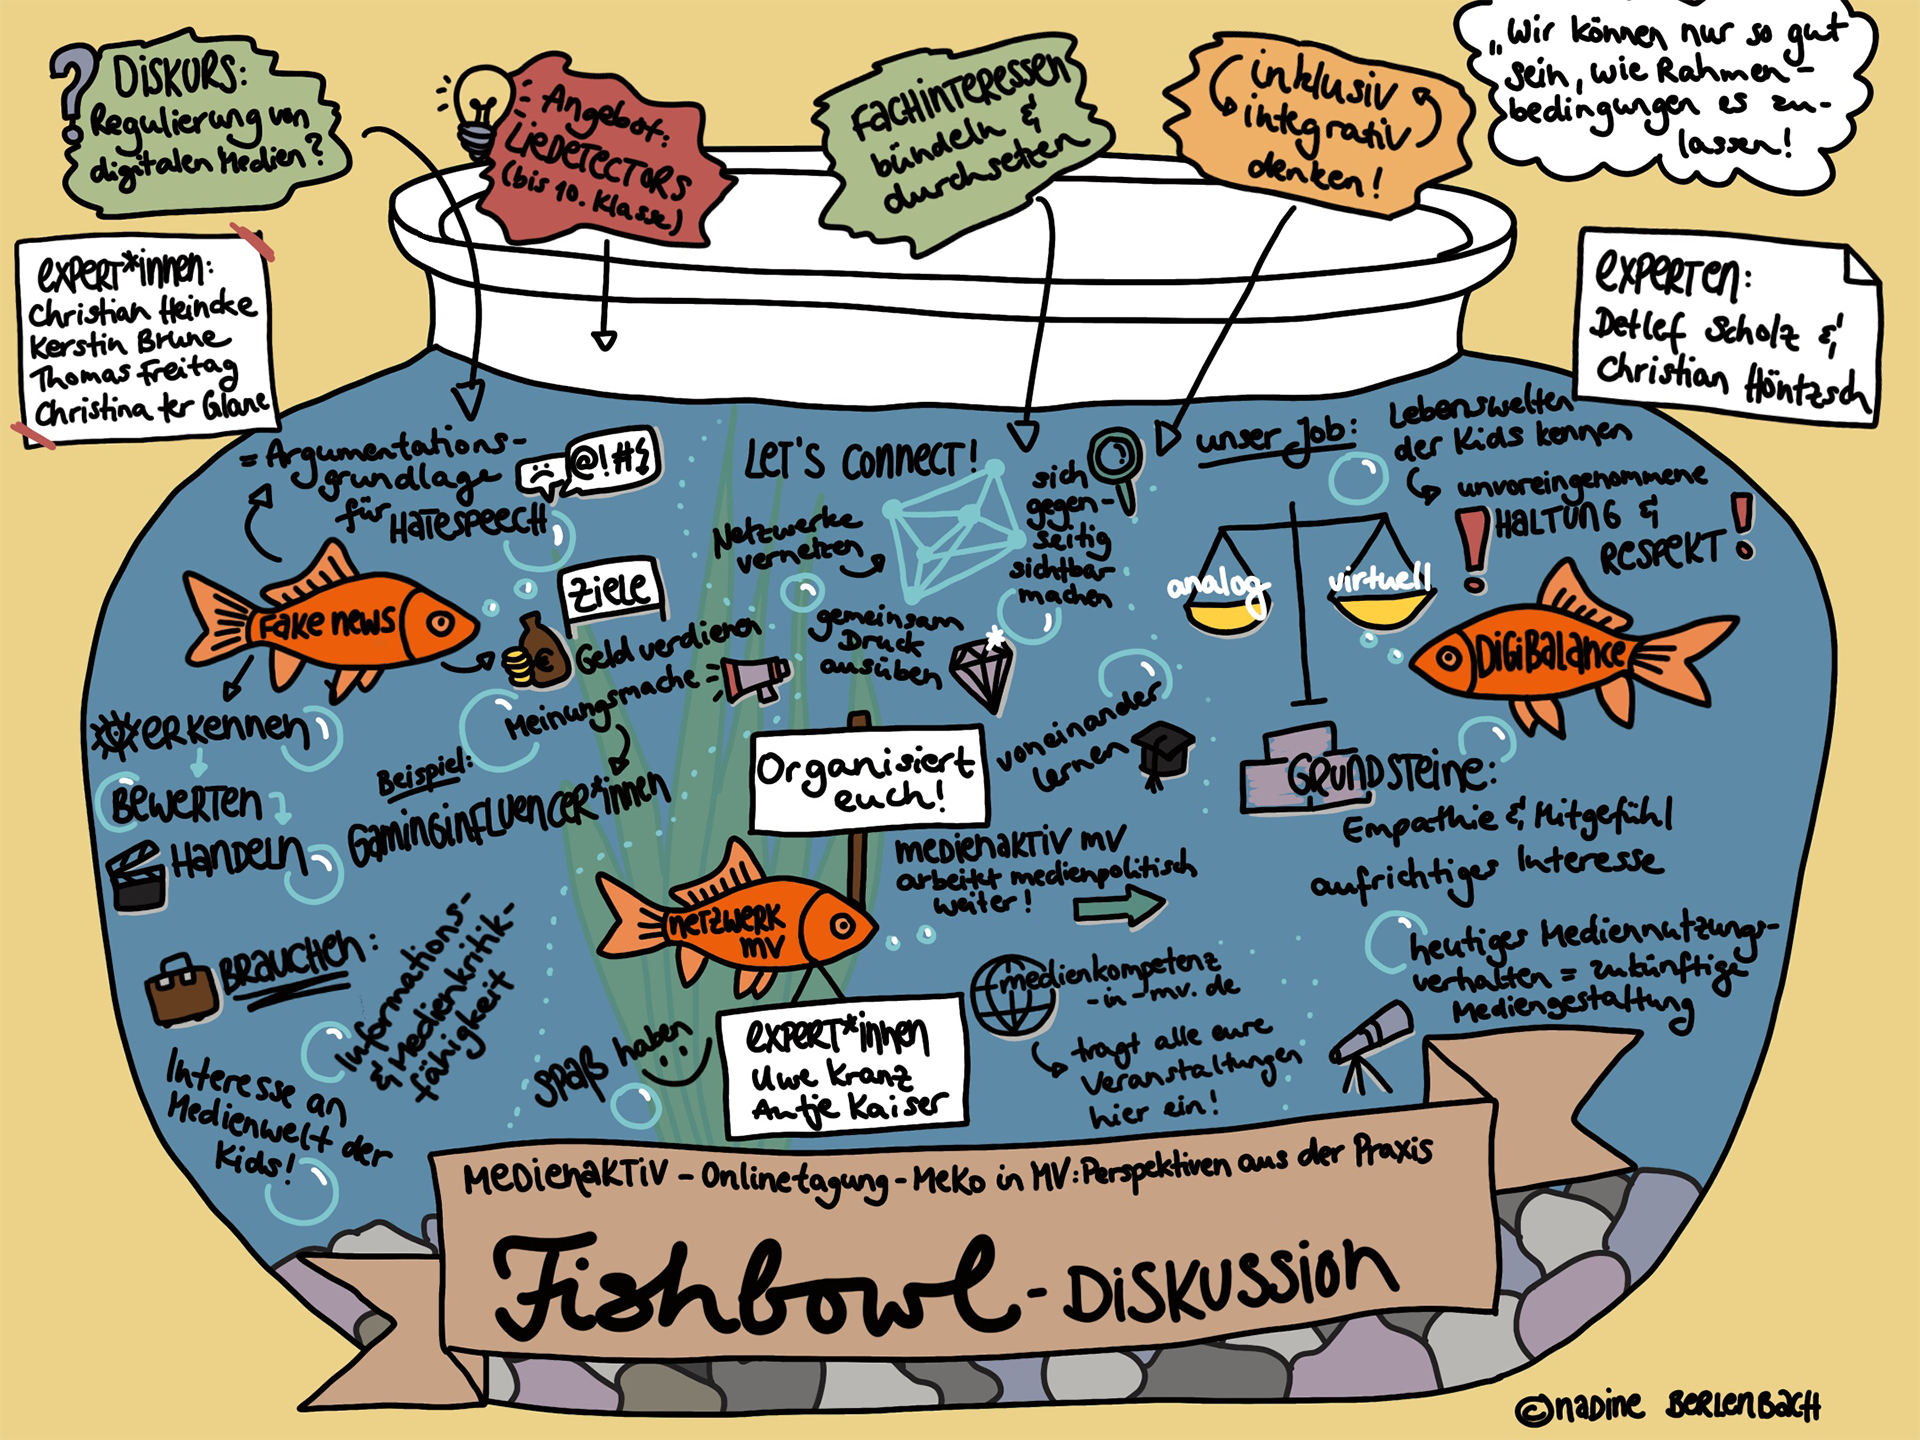 DISKURS:
Regulierung von
digitalen Medien?
Angebot:
LIEDETECTORS
(bis 10. Klasse)
FACHINTERESSEN
bündeln &
durchsetzen
inklusiv
integrativ
denken!
„Wir können nur so gut
sein, wie Rahmen-
bedingungen es zu-
lassen!
EXPERT*INNEN:
Christian Heincke
Kerstin Brune
Thomas Freitag
Christina ter Glane
EXPERTEN:
Detlef Scholz &
Christian Höntzsch
= Argumentations-
grundlage
für
HATESPEECH
@!#§
FAKE NEWS
ZIELE
Geld verdienen
Meinungsmache
ERKENNEN
BEWERTEN
HANDELN
Beispiel:
GAMINGINFLUENCER*INNEN
BRAUCHEN:
Informations-
& Medienkritik-
fähigkeit
Interesse an
Medienwelt der
Kids!
SPAß haben
LET'S CONNECT!
Netzwerke
vernetzen
sich
gegen-
seitig
sichtbar
machen
gemeinsam
Druck
ausüben
voneinander
lernen
Organisiert
euch!
NETZWERK
MV
MEDIENAKTIV MV
arbeitet medienpolitisch
weiter!
medienkompetenz
-in-mv.de
tragt alle eure
Veranstaltungen
hier ein!
EXPERT*INNEN
Uwe Kranz
Antje Kaiser
unser Job:
Lebenswelten
der Kids kennen
unvoreingenommene
HALTUNG &
RESPEKT
analog
virtuell
DIGIBALANCE
GRUNDSTEINE:
Empathie & Mitgefühl
aufrichtiges Interesse
heutiges Mediennutzungs-
verhalten = zukünftige
Mediengestaltung
MEDIENAKTIV - Onlinetagung - MeKo in MV: Perspektiven aus der Praxis
Fishbowl - DISKUSSION
©NADINE BERLENBACH